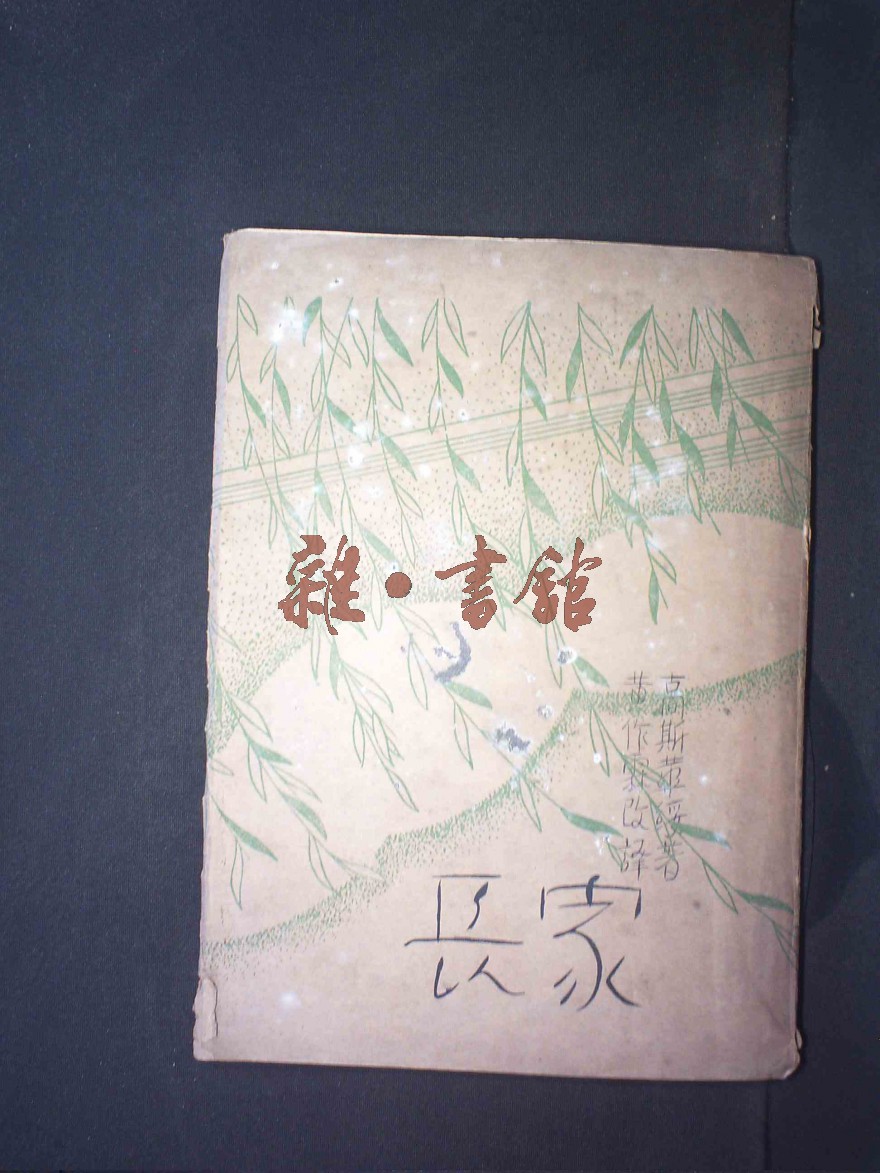 雜·書館
高斯華綏著
黄作霖改譯
家長